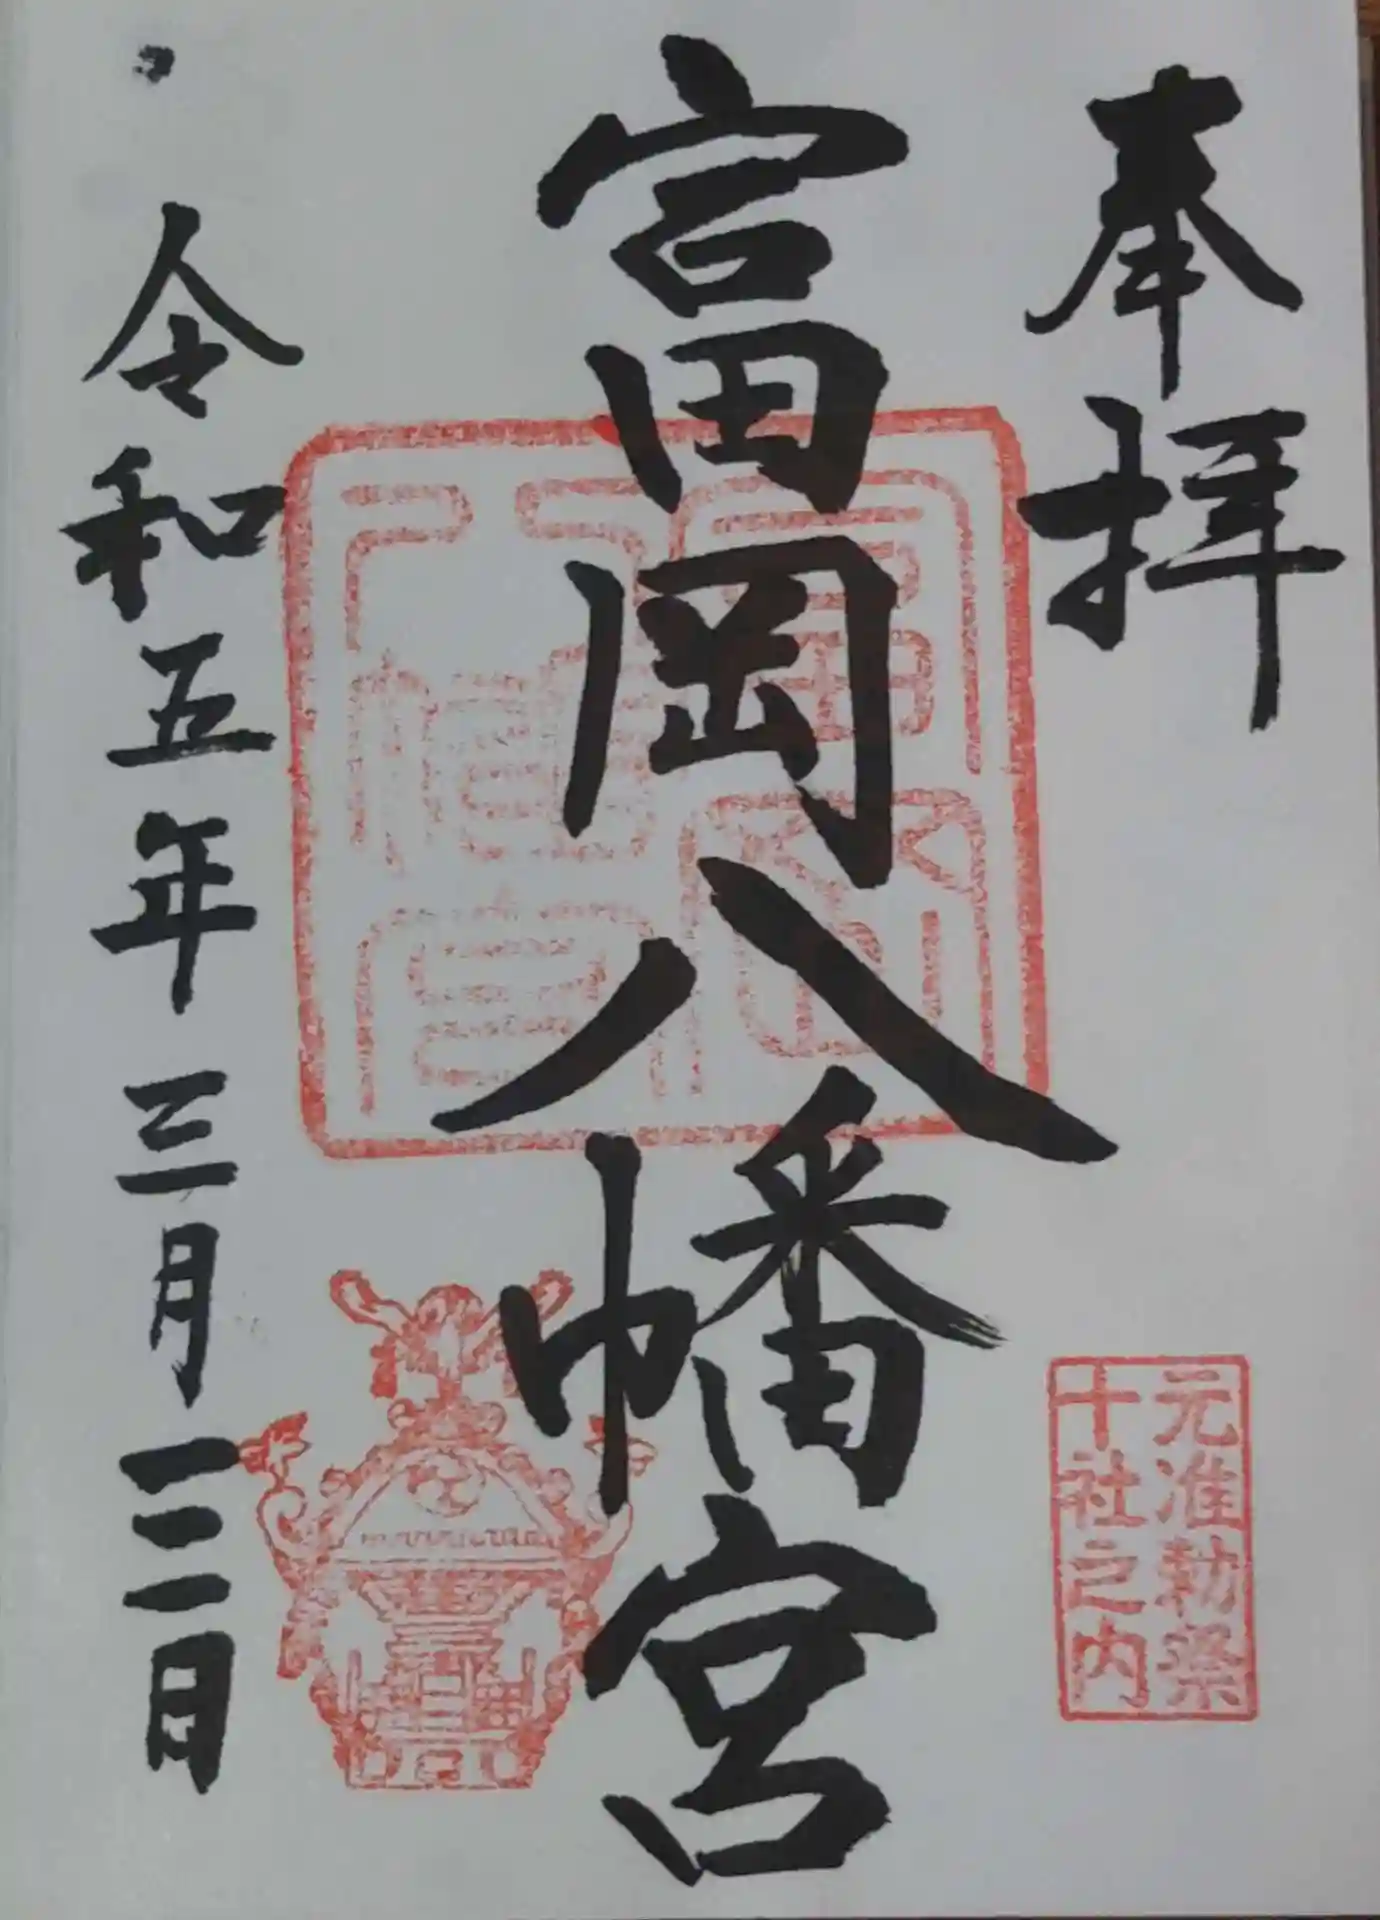 奉拝
富岡八幡宮
富岡
八幡宮
元准勅祭
十社之内
令和五年三月日